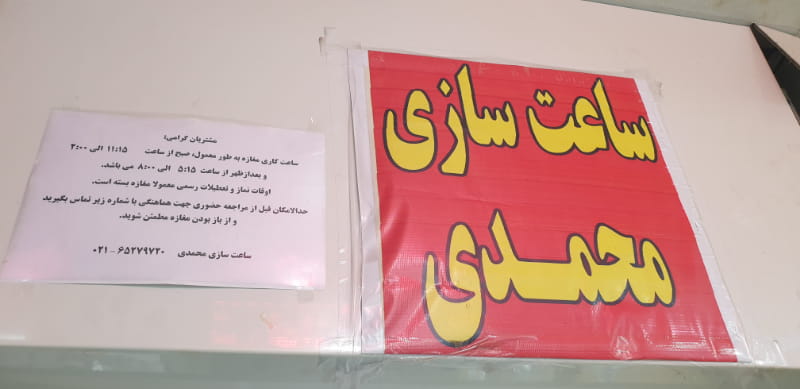 ساعت سازی
محمدی
مشتریان گرامی:
ساعت کاری مغازه به طور معمول، صبح از ساعت ۱۱:۱۵ الی ۲:۰۰
و بعدازظهر از ساعت ۵:۱۵ الی ۸:۰۰ می باشد.
اوقات نماز و تعطیلات رسمی معمولا مغازه بسته است.
حدالامکان قبل از مراجعه حضوری جهت هماهنگی با شماره زیر تماس بگیرید
و از باز بودن مغازه مطمئن شوید.
ساعت سازی محمدی ۰۲۱-۶۵۲۷۹۷۲۰